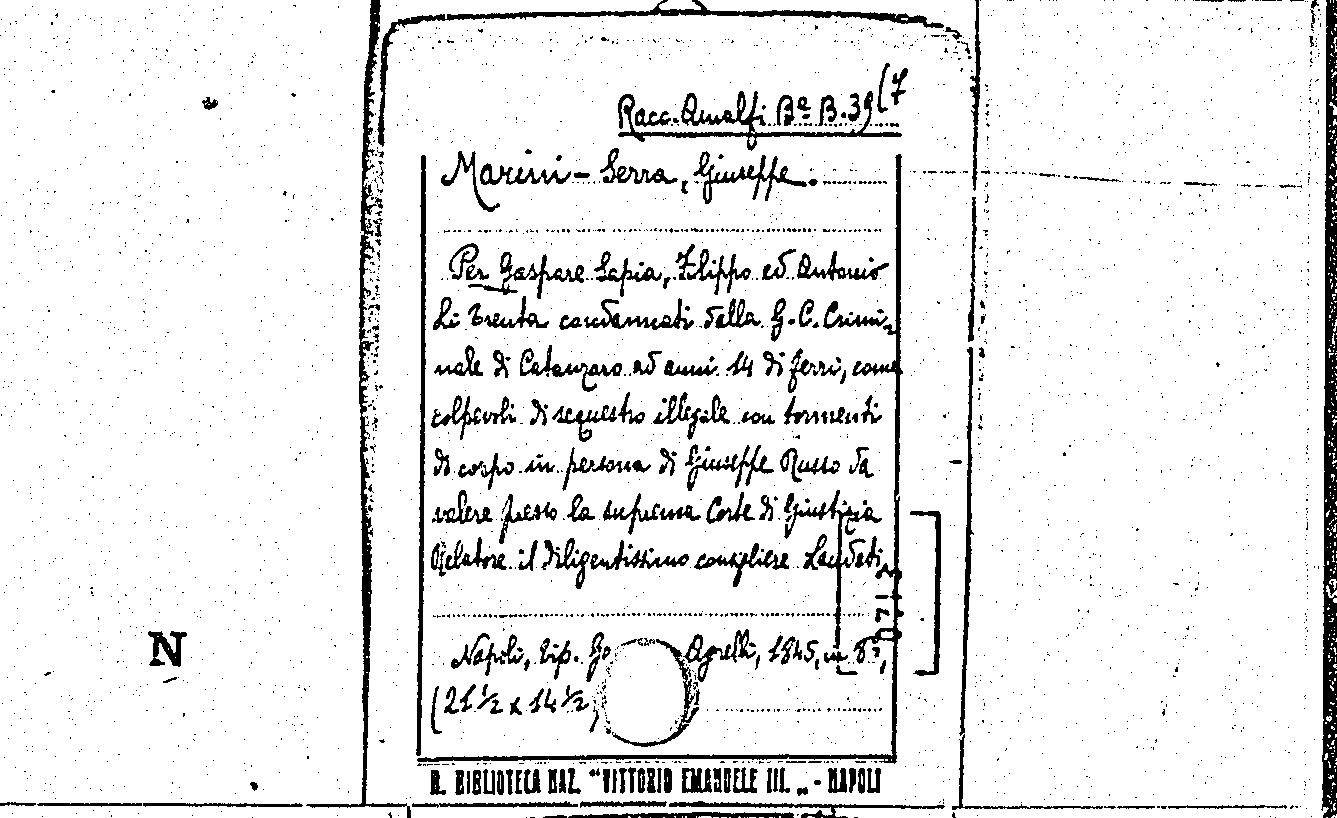 Racc. Amalfi Bª B. 39(7
Marini-Serra, Giuseppe.
Per Gaspare Sapia, Filippo ed Antonio
Li Trenta condannati dalla G. C. Crimi-
nale di Catanzaro ad anni 14 di ferri, come
colpevoli di sequestro illegale con tormenti
di corpo in persona di Giuseppe Russo da
valere presso la suprema Corte di Giustizia
Relatore il diligentissimo consigliere Laudati,
N
Napoli, tip. Agrelli, 1845, in 8º,
(21 ½ x 14 ½)
R. BIBLIOTECA NAZ. "VITTORIO EMANUELE III. „ - NAPOLI